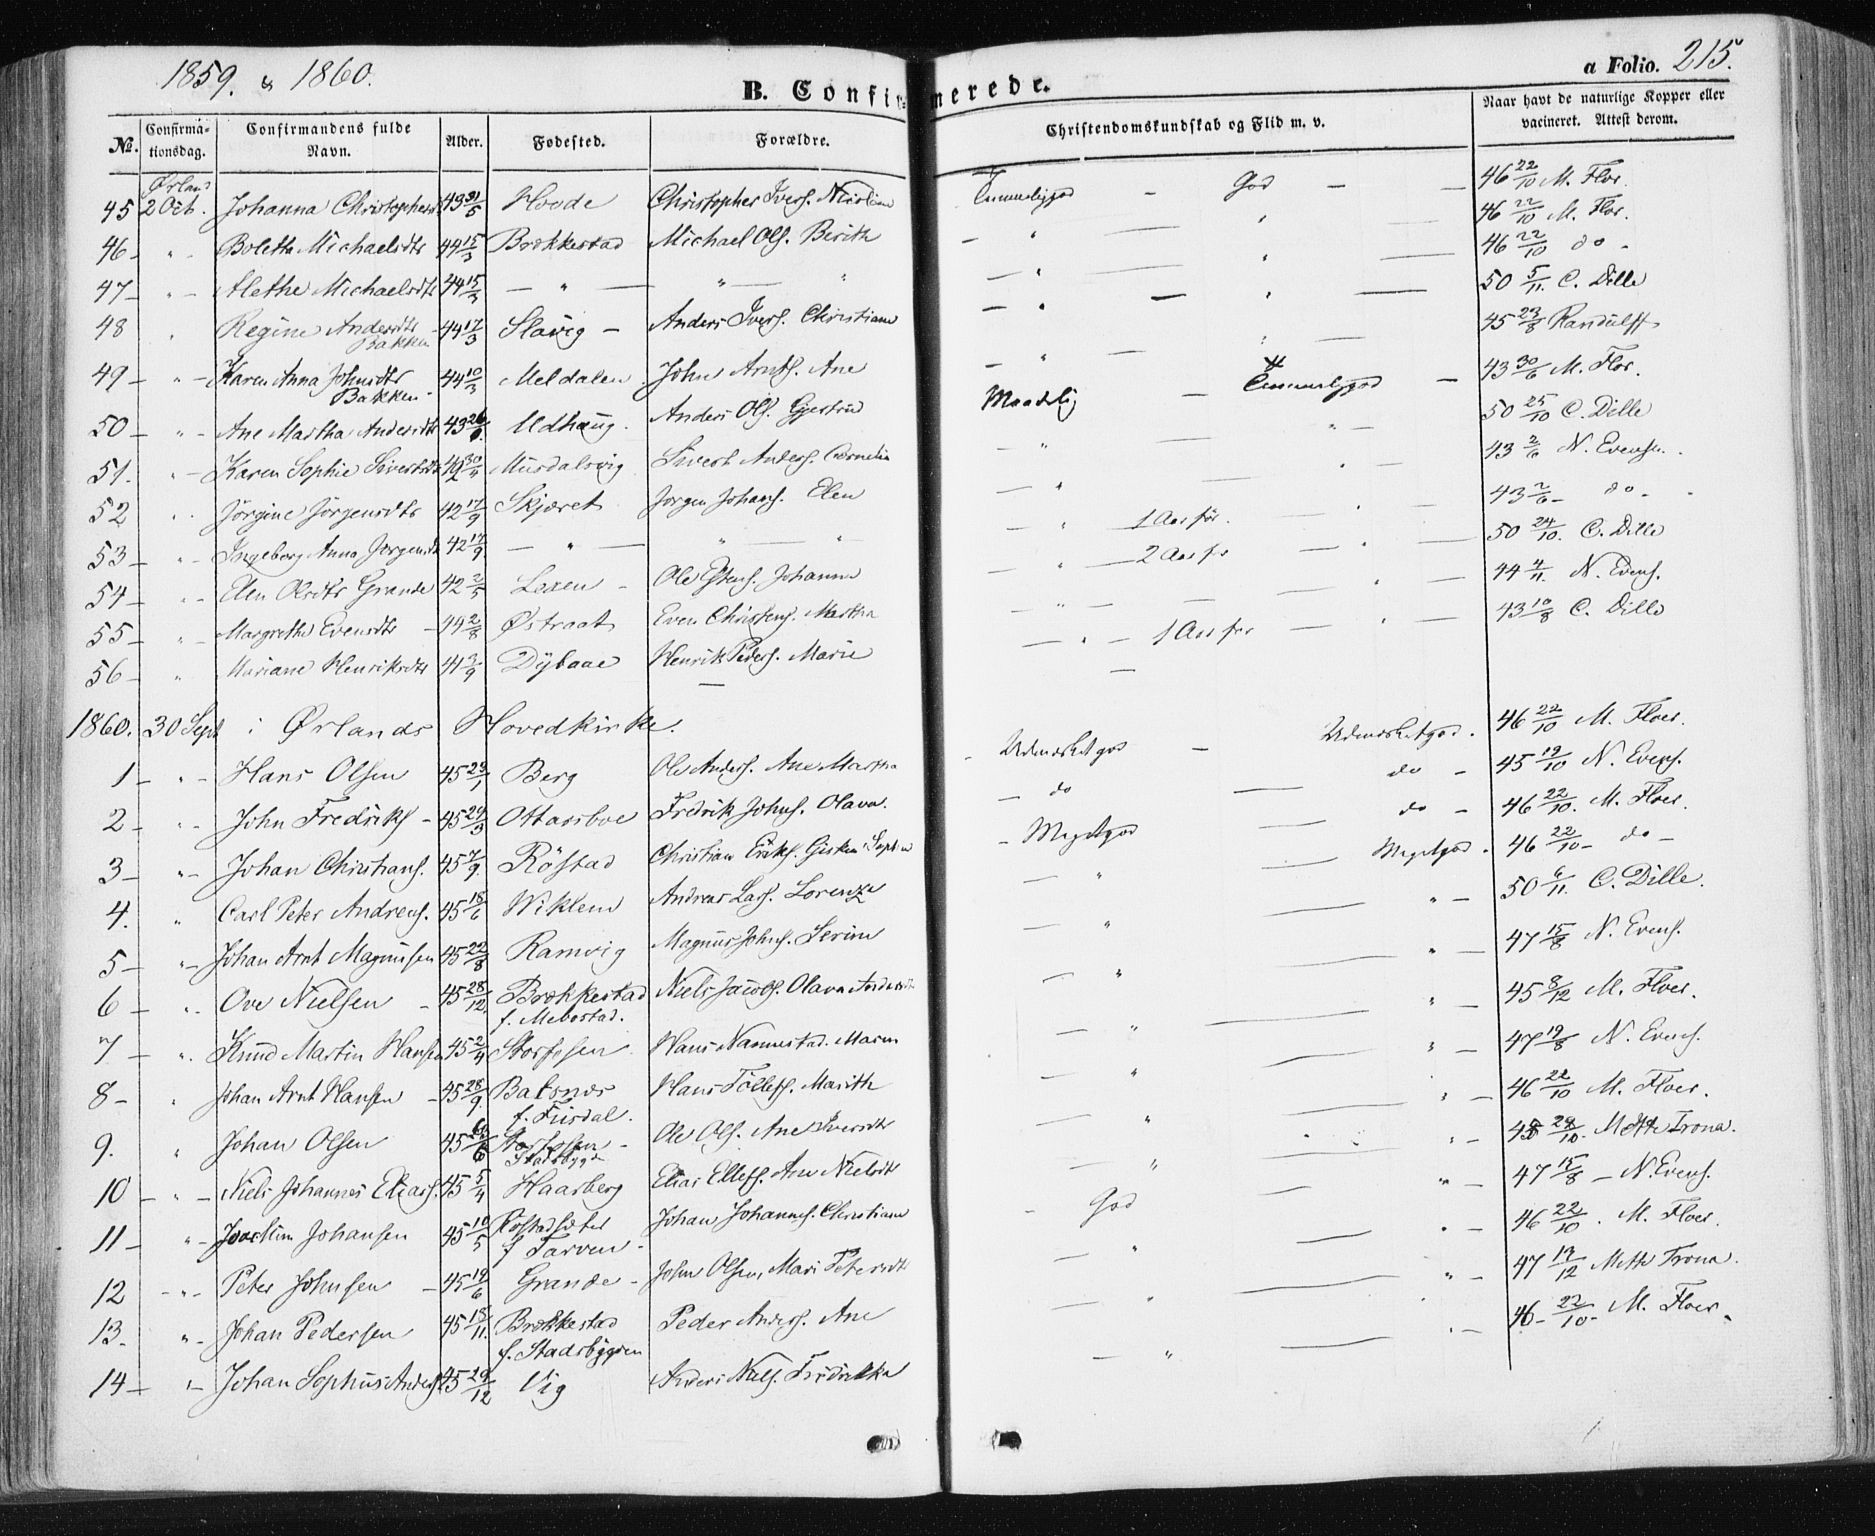 1859. & 1860.
B. Confirmerede.
a Folio. 215.
No. Confirmationsdag. Confirmandens fulde Navn. Alder. Fødested. Forældre. Christendomskundskab og Flid m. v. Naar havt de naturlige Kopper eller vacineret. Attest derom.
Ørland
45 2 Oct. Johanna Christophersd 43 31/5 Hovde Christopher Ivers. Nicoline God 46 22/10 M. Flor.
46 - " - Boletta Michaelsdtr 44 15/3 Brækkestad Michael Ols. Berith - " - 46 22/10 M. Flor.
47 - " - Alethe Michaelsdtr 44 15/3 - " - " - " 46 22/10 do -
48 " Regine Andersdtr Bakken 44 17/3 Slavig - Anders Ivers. Christiane 50 5/11. C. Dille
49 - " - Karen Anna Johnsdtr Bakken - 44 10/3 Meldalen John Arnts. Ane 45 23/8 Randulff
50 - " - Ane Martha Andersdtr 43 26/6. Udhaug. Anders Ols. Gjertrud Maadelig - 43 30/6 M. Flor.
51. " - Karen Sophie Sivertsdtr 30/4 Musdalsvig Sivert Anders. Cornelia 50 25/10 C. Dille
52 " . Jörgine Jörgensdtr 42 17/9 Skjæret Jörgen Johans. Elen 43 2/6 N. Evensen.
53 - " - Ingeborg Anna Jörgensdt 42 17/9 - " - " - " 1 Aar för. 43 2/6 - do -
54 - " - Elen Olsdtr Grande 42 2/5 Lexen - Ole Johanna 2 Aar för 50 24/10. C. Dille
55 - " Margrethe Evensdtr - 2/8 Østraat Even Christens. Martha 44 4/11. N. Evens.
56 - " Mariane Henriksdtr 41 2/9 Dybaae Henrik Peders. Marie 1 Aar för 43 10/8 C. Dille
1860. 30 Sept i Ørlands Hovedkirke.
1 - " - Hans Olsen 45 23/1 Berg Ole Anders. Ane Martha Udmærketgod - Udmærketgod. 46 22/10 M. Floer.
2 - " - John Fredriks - 45 29/3 Ottarsboe Fredrik Johns. Olava. - do do - 45 19/10 N. Evens.
3 - " - Johan Christians. 45 7/9. Röstad Christian Eriks. Gisken Soph - Megetgod do - 46 22/10. M. Floer.
4. " Carl Peter Andreas. 45 18/6 Wiklem Andreas Lars. Lorenze " Megetgod. 46 22/10 - do -
5 - " - Johan Arnt Magnusen 45 22/8 Ramvig Magnus Johns. Serine " " - 50 6/11. C. Dille.
6 - " . Ove Nielsen - 45 28/12. Brækkestad f. Mebostad. Niels Jacobs. Olava Andersdt " " 47 15/8 N. Evens.
7 - " . Knud Martin Hansen 45 2/4 Storfosen Hans Nannestad. Maren " " 45 8/12 M. Floer.
8 - " Johan Arnt Hansen - 45 28/9. Balsnes f. Fusdal. Hans Tollefs. Marith " " - 47 19/8 N. Evens.
9. " Johan Olsen 45 Storfosen - Stadsbygd Ole Ols. Ane Iversdtr " " - 46 22/10 M. Floer.
10 - " - Niels Johannes Elias. 45 5/4 Haarberg Elias Ellefs. Ane Nielsdtr " " - 29/10. Mette Trona.
11 - " - Joachim Johansen 45 10/5 f Tarven - Johan Johannes. Christiane - God " - 47 15/8 - N. Evens.
12 - " - Peter Johnsen - 45 19/6 Grande - John Olsen, Mari Petersdtr " " - 46 22/10. M. Floer.
13. " - Johan Pedersen 45 15/11. Brækkestad f. Stadsbygden Peder Anders. Ane " " - 47 17/12 Mette Trona.
14 - " - Johan Sophus Anders. 45 29/12 Vig Anders Niels. Fredrikka " " - 46 - 22/10 - M. Floer.